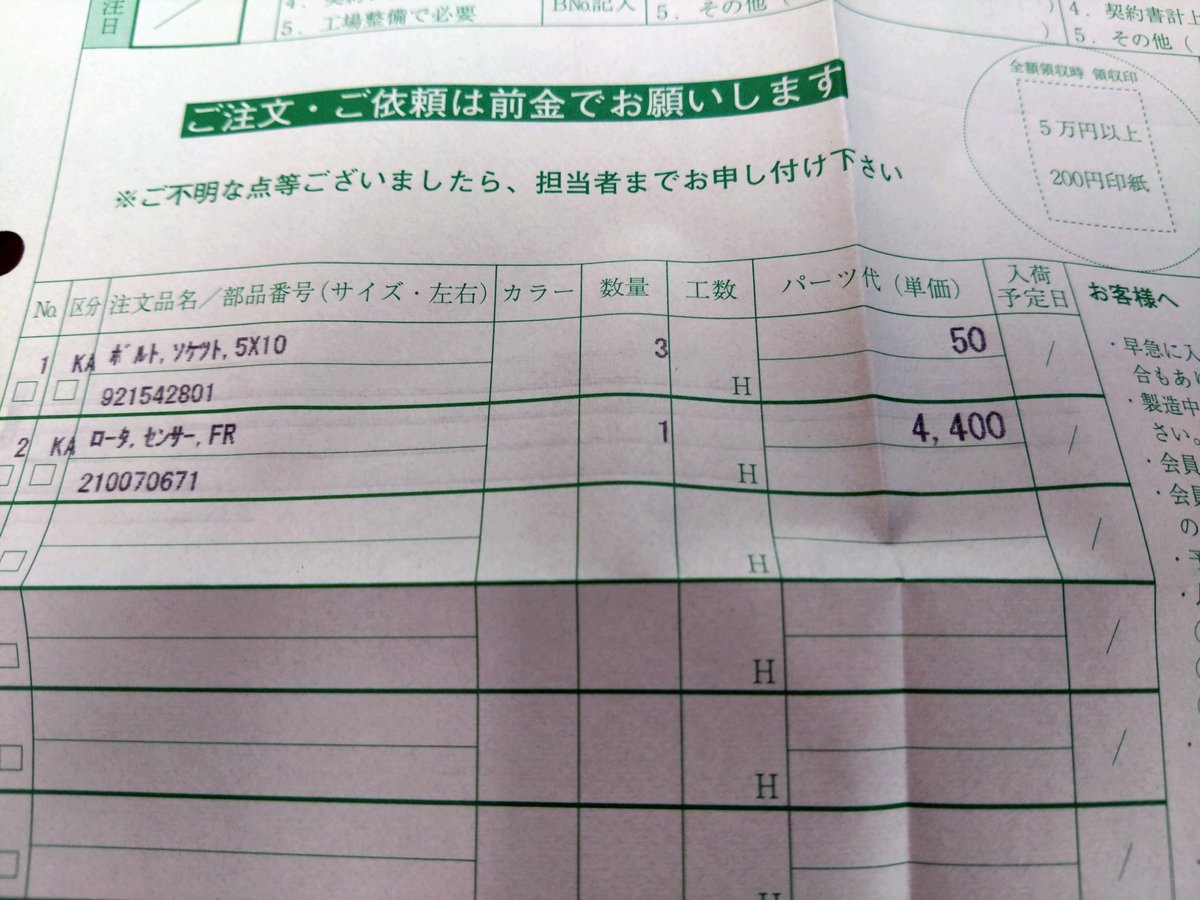 注
日
4.
5. 工場整備で必要
BNo.記入
5. その他（
）
4. 契約書計上
5. その他（
ご注文・ご依頼は前金でお願いします
※ご不明な点等ございましたら、担当者までお申し付け下さい
全額領収時 領収印
5万円以上
200円印紙
No. 区分 注文品名／部品番号(サイズ・左右) カラー 数量 工数 パーツ代(単価) 入荷予定日
1 KA ﾎﾞﾙﾄ,ｿｹｯﾄ,5X10 3 H 50 /
921542801
2 KA ﾛｰﾀ,ｾﾝｻｰ,FR 1 H 4,400 /
210070671
H /
H /
H /
H /
お客様へ
・早急に入
合もあ
・製造中
さい。
・会員
・会員
の